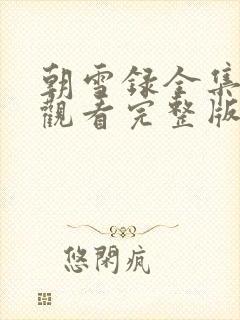 朝雪録全集
觀看完整版
悠閑疯